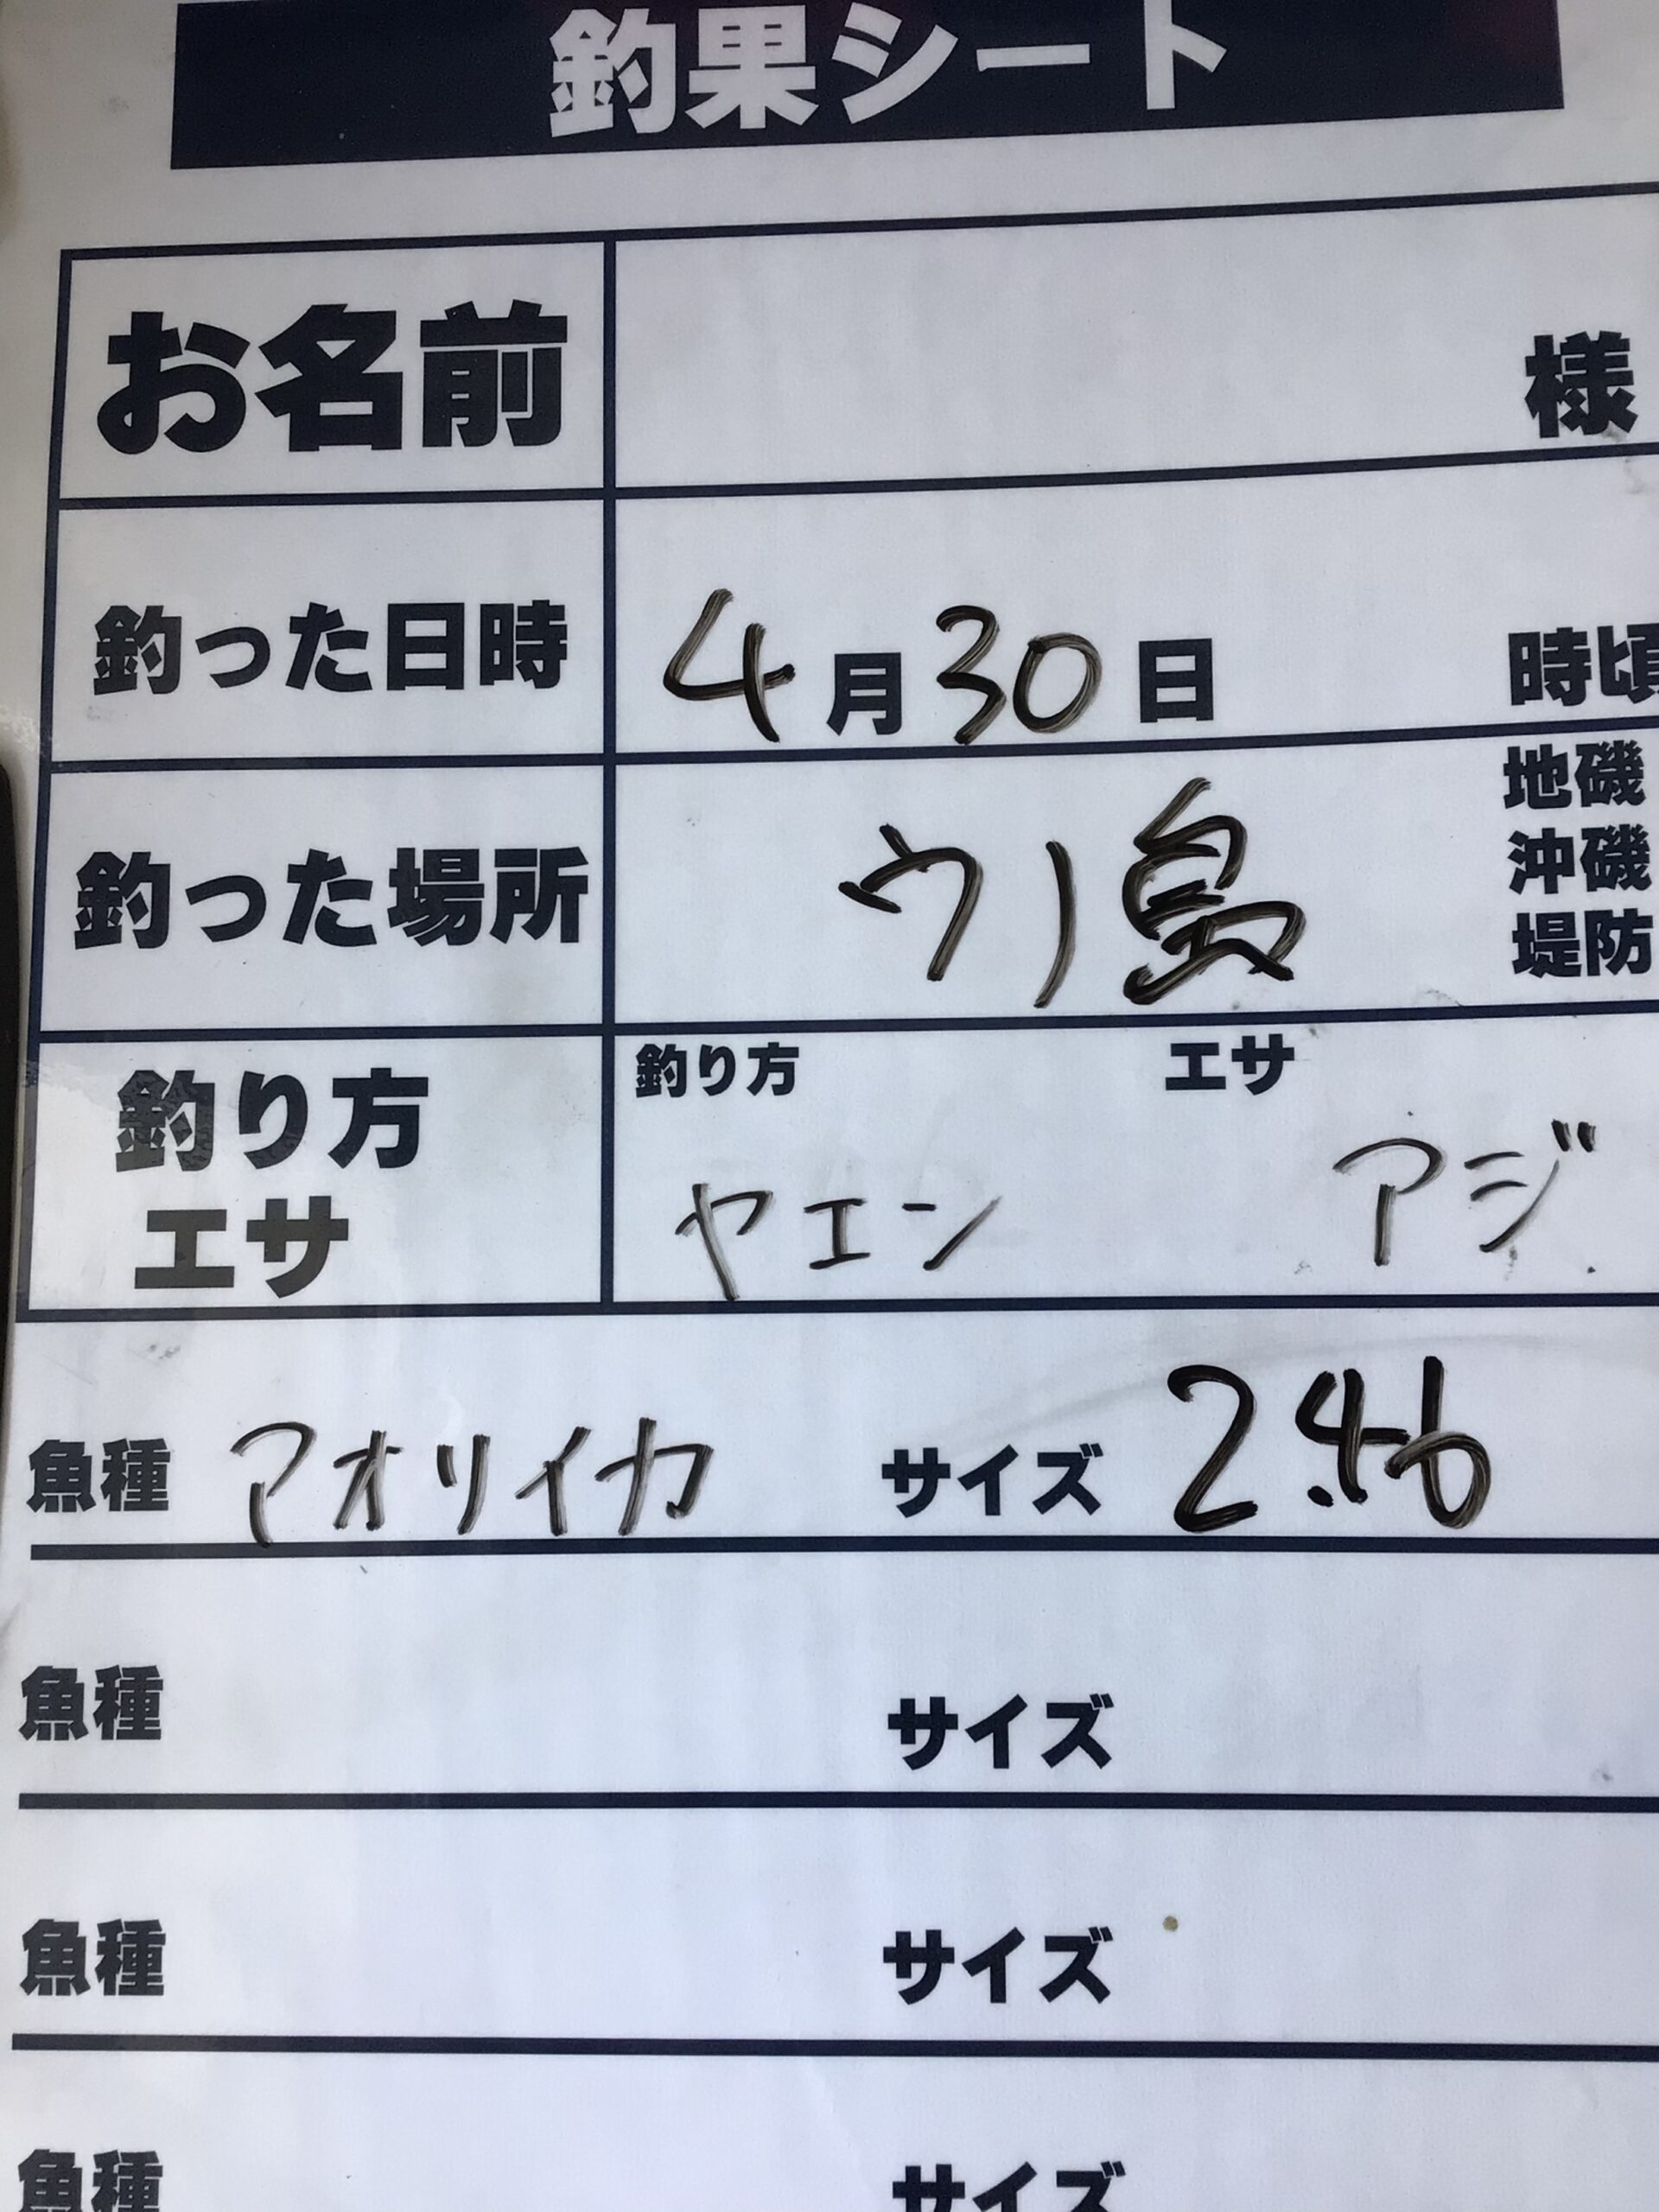 釣果シート
お名前 様
釣った日時 4月30日 時頃
釣った場所 ウノ島 地磯
沖磯
堤防
釣り方 エサ
釣り方 エサ
ヤエン アジ
魚種 アオリイカ サイズ 2.46
魚種 サイズ
魚種 サイズ
魚種 サイズ